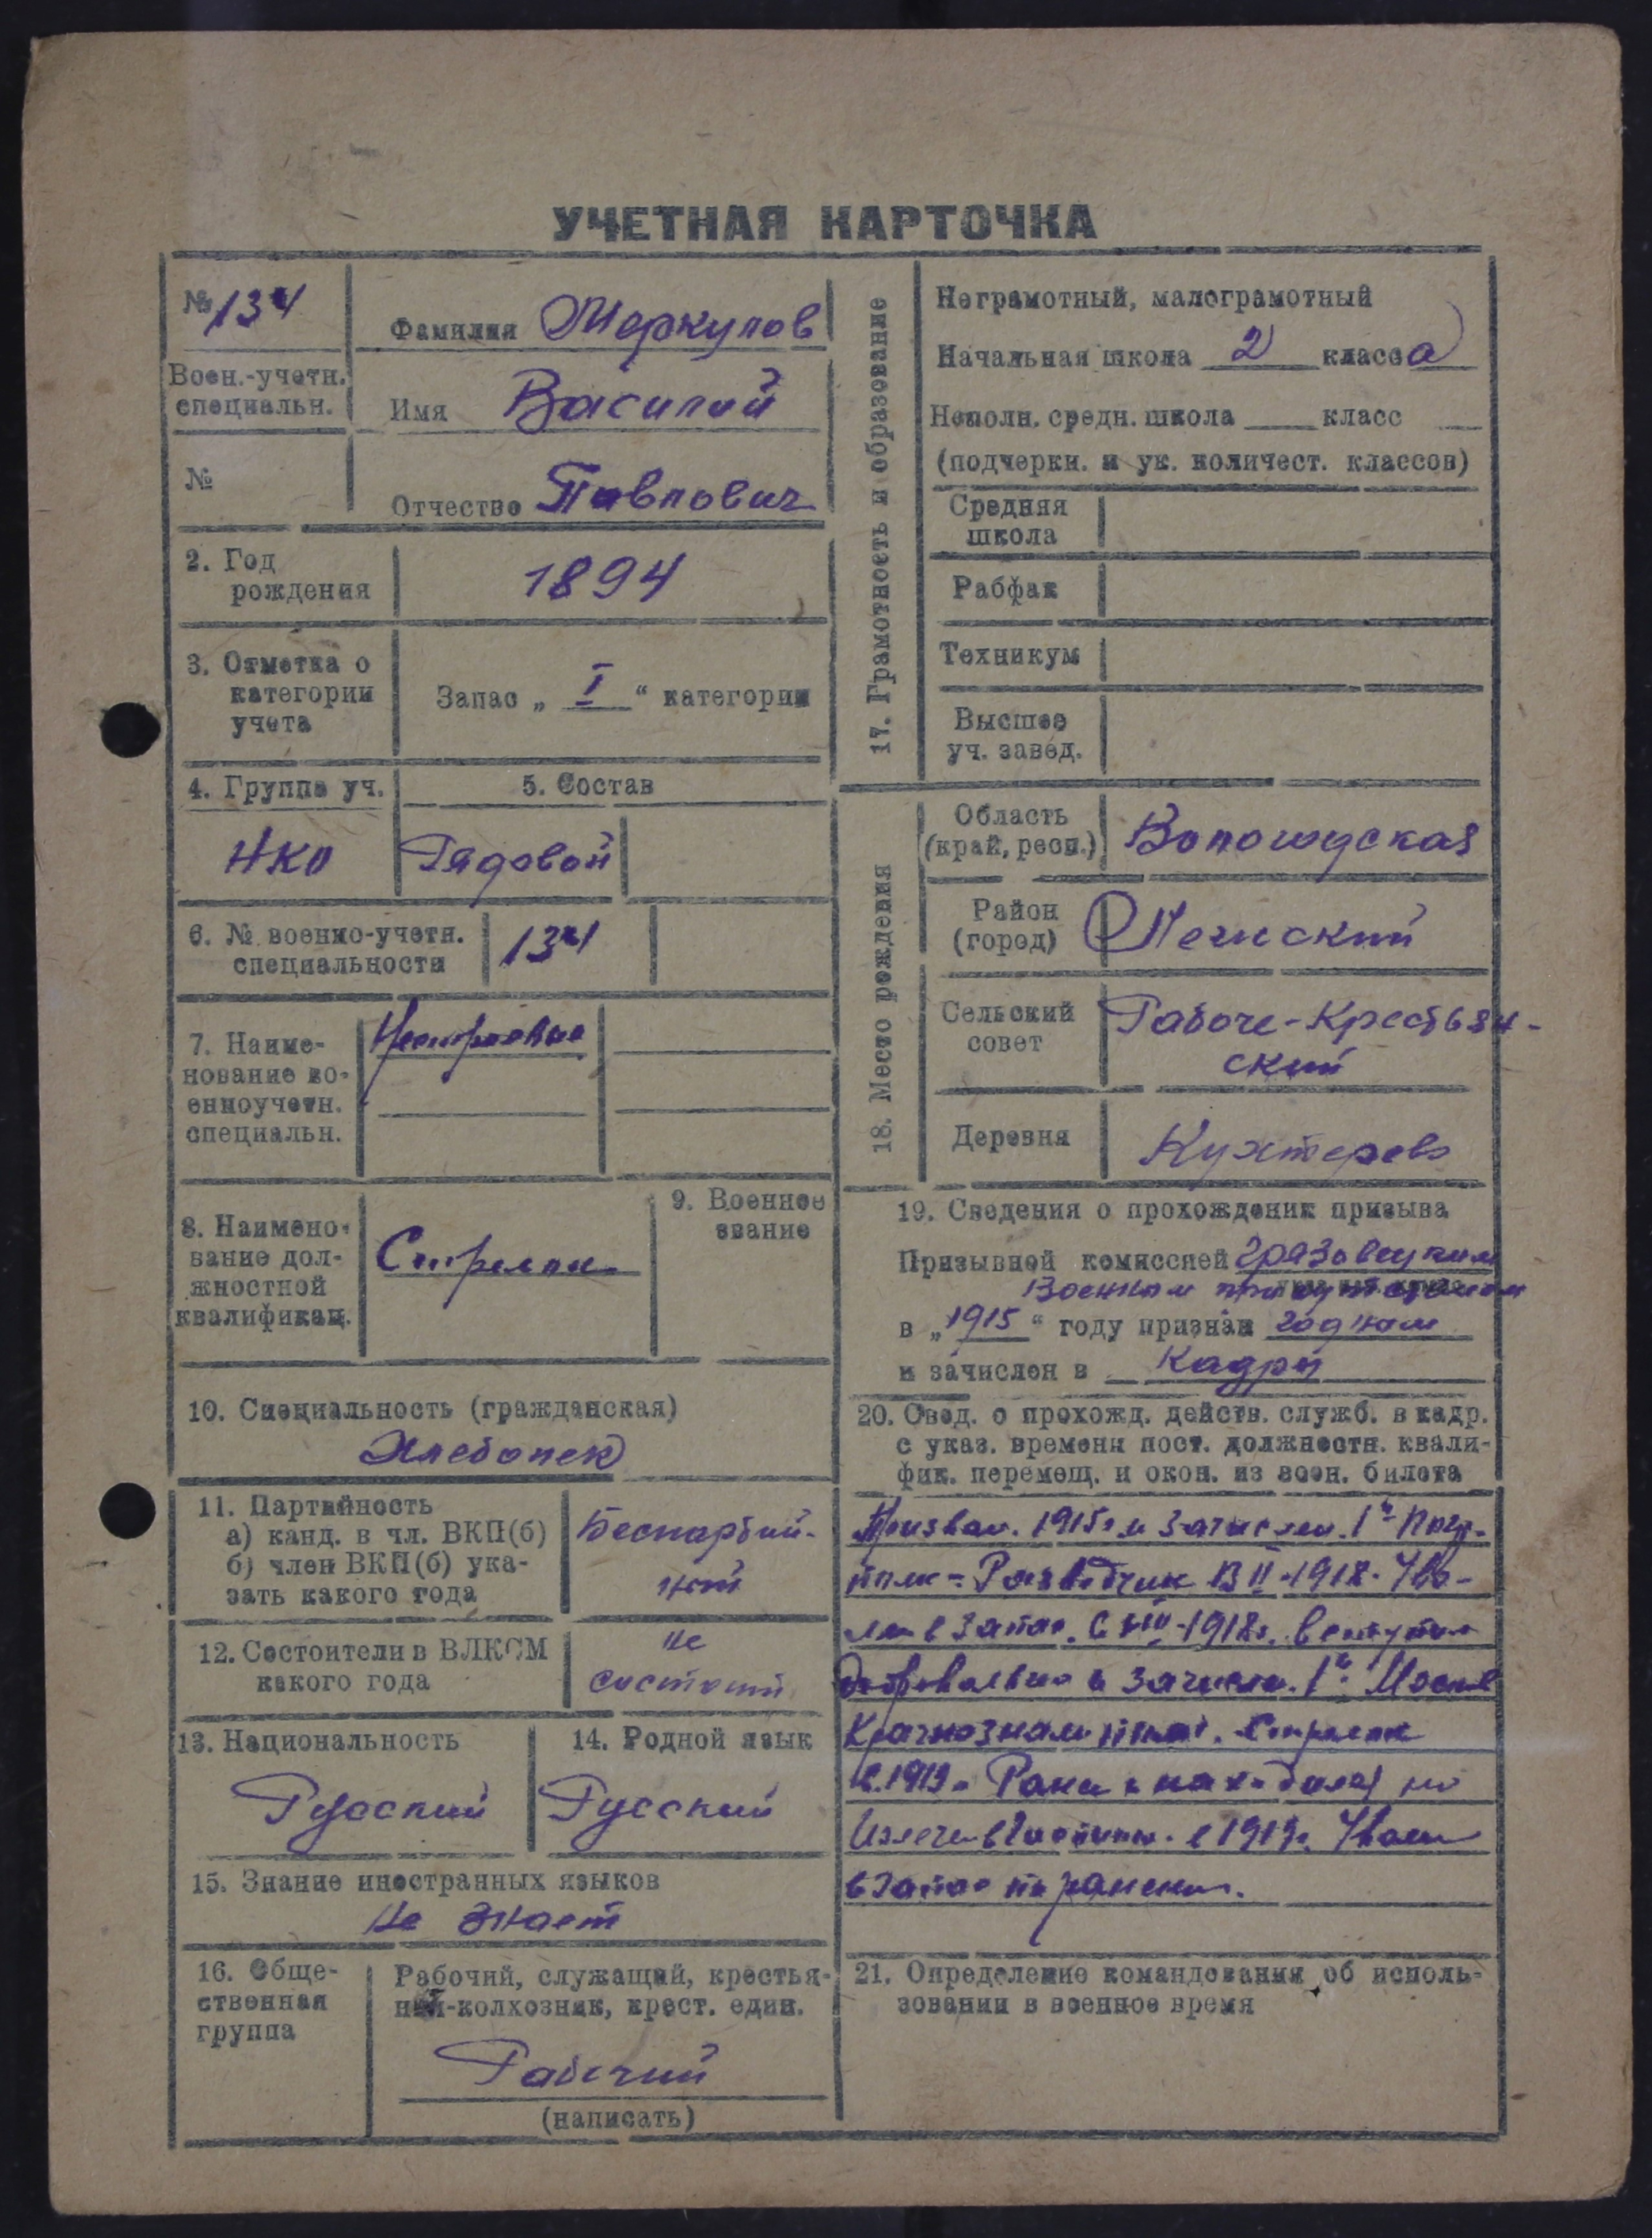 УЧЕТНАЯ КАРТОЧКА
№ 134
Фамилия Меркулов
Воен.-учетн.
специальн.
Имя Василий
№
Отчество Павлович
2. Год
рождения
1894
3. Отметка о
категории
учета
Запас „ I “ категории
4. Группа уч.
НКО
5. Состав
Рядовой
6. № военно-учетн.
специальности
134
7. Наиме-
нование во-
енноучетн.
специальн.
8. Наимено-
вание дол-
жностной
квалификац.
Стрелок
9. Военное
звание
10. Специальность (гражданская)
Хлебопек
11. Партийность
а) канд. в чл. ВКП(б)
б) член ВКП(б) ука-
зать какого года
Беспартий-
ный
12. Состоители в ВЛКСМ
какого года
не
состоит
13. Национальность
Русский
14. Родной язык
Русский
15. Знание иностранных языков
не знает
16. Обще-
ственная
группа
Рабочий, служащий, крестья-
нин-колхозник, крест. един.
Рабочий
(написать)
17. Грамотность и образование
Неграмотный, малограмотный
Начальная школа 2 класса
Неполн. средн. школа класс
(подчеркн. и ук. количест. классов)
Средняя
школа
Рабфак
Техникум
Высшее
уч. завед.
18. Место рождения
Область
(край, респ.)
Вологодская
Район
(город)
Сельский
совет
Рабоче-Крестьян-
ский
Деревня
Кухтерево
19. Сведения о прохождении призыва
Призывной комиссией Грязовецким
Военным присутствием
в „1915“ году признан годным
и зачислен в Кадры
20. Свед. о прохожд. действ. служб. в кадр.
с указ. времени пост. должностн. квали-
фик. перемещ. и окон. из воен. билета
Призван. 1915г. и зачислен. 1й
полк - Разведчик В II-1918. Уво-
лен в Запас. С 1918г. вступил
добровольно и зачислен. 1й Моск
Краснознам полк. Стрелок
в 1919г Ранен и находился по
в 1919г. Уволен
в Запас по ранению.
21. Определение командования об исполь-
зовании в военное время